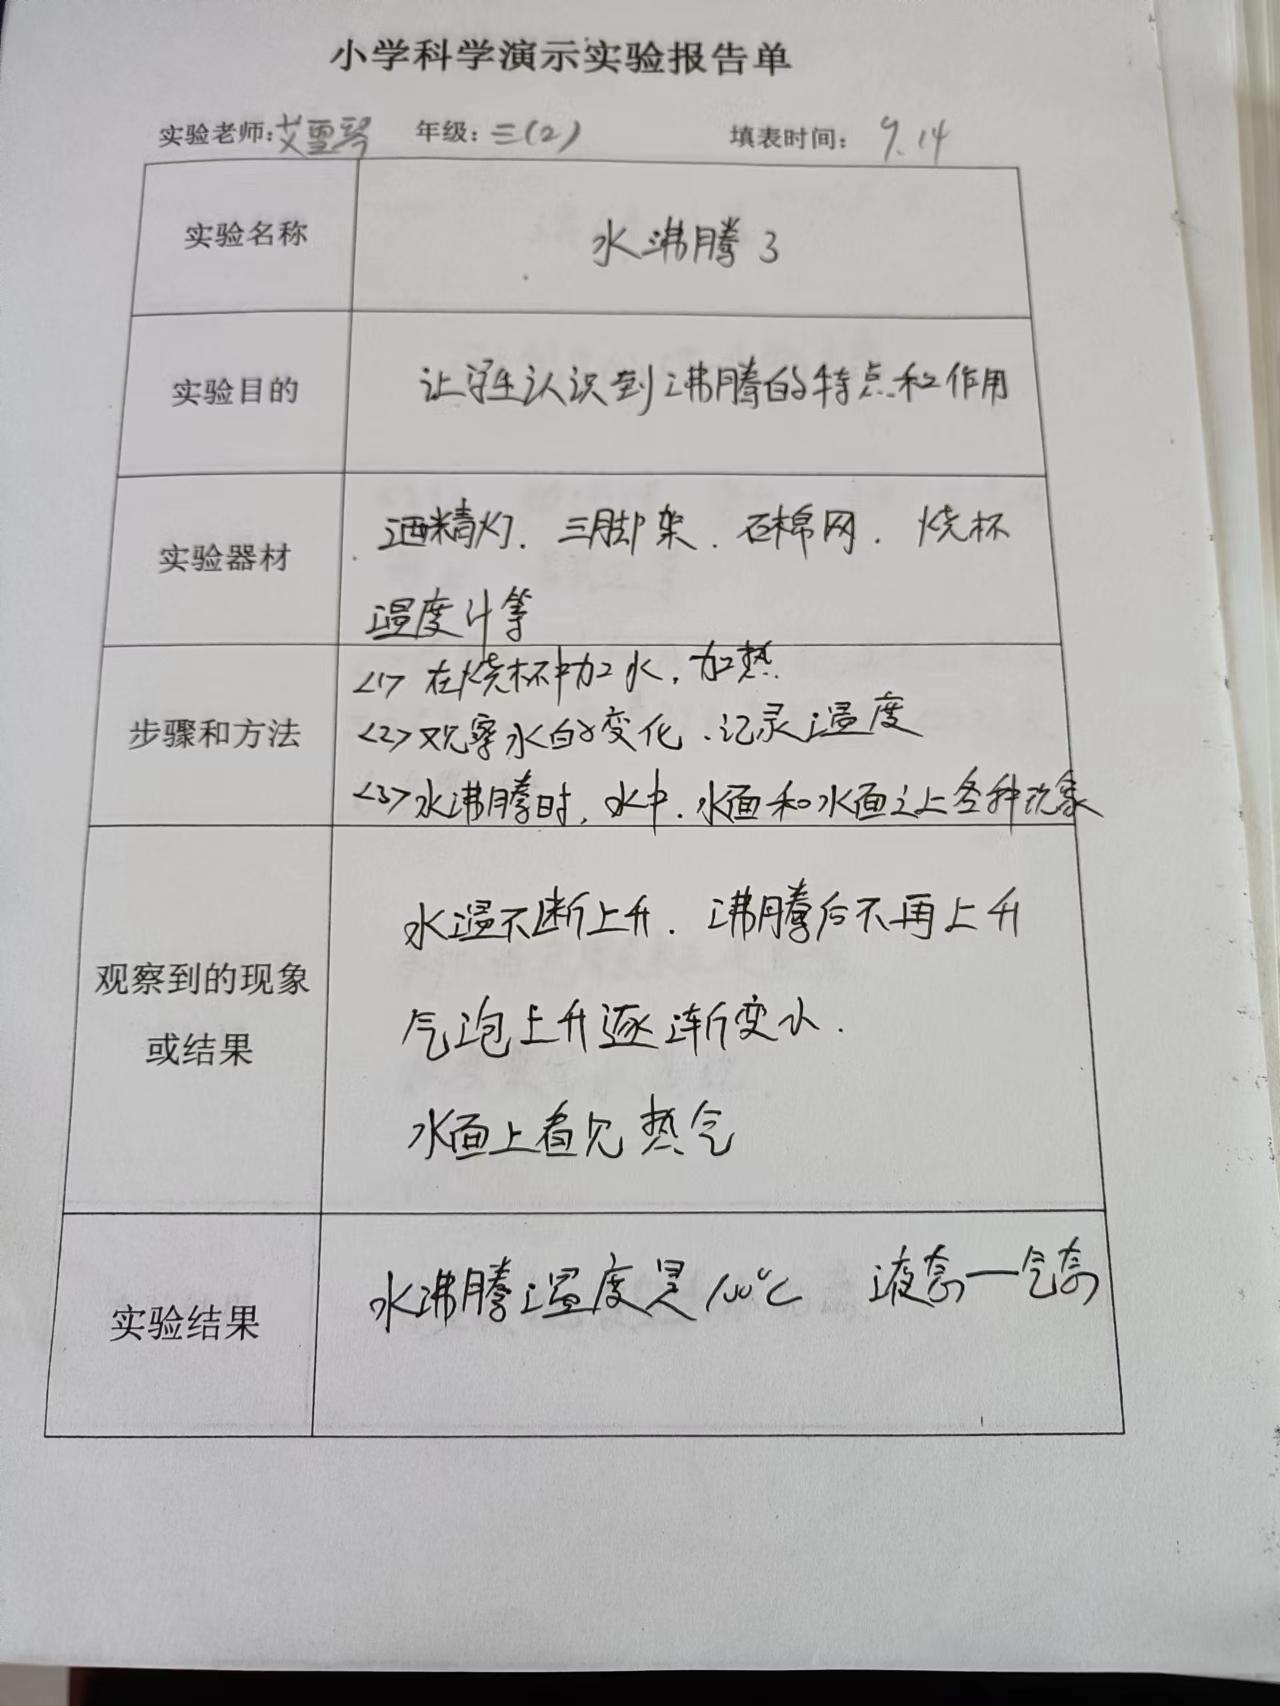 小学科学演示实验报告单
实验老师:艾雪琴 年级:三(2) 填表时间: 9.14
实验名称 水沸腾3
实验目的 让学生认识到沸腾的特点和作用
实验器材 酒精灯.三脚架.石棉网.烧杯
温度计等
步骤和方法 <1>在烧杯中加水,加热
<2>观察水的变化、记录温度
<3>水沸腾时,水中.水面和水面之上各种现象
观察到的现象
或结果
水温不断上升.沸腾后不再上升
气泡上升逐渐变小.
水面上看见热气
实验结果 水沸腾温度是100℃ 液态—气态